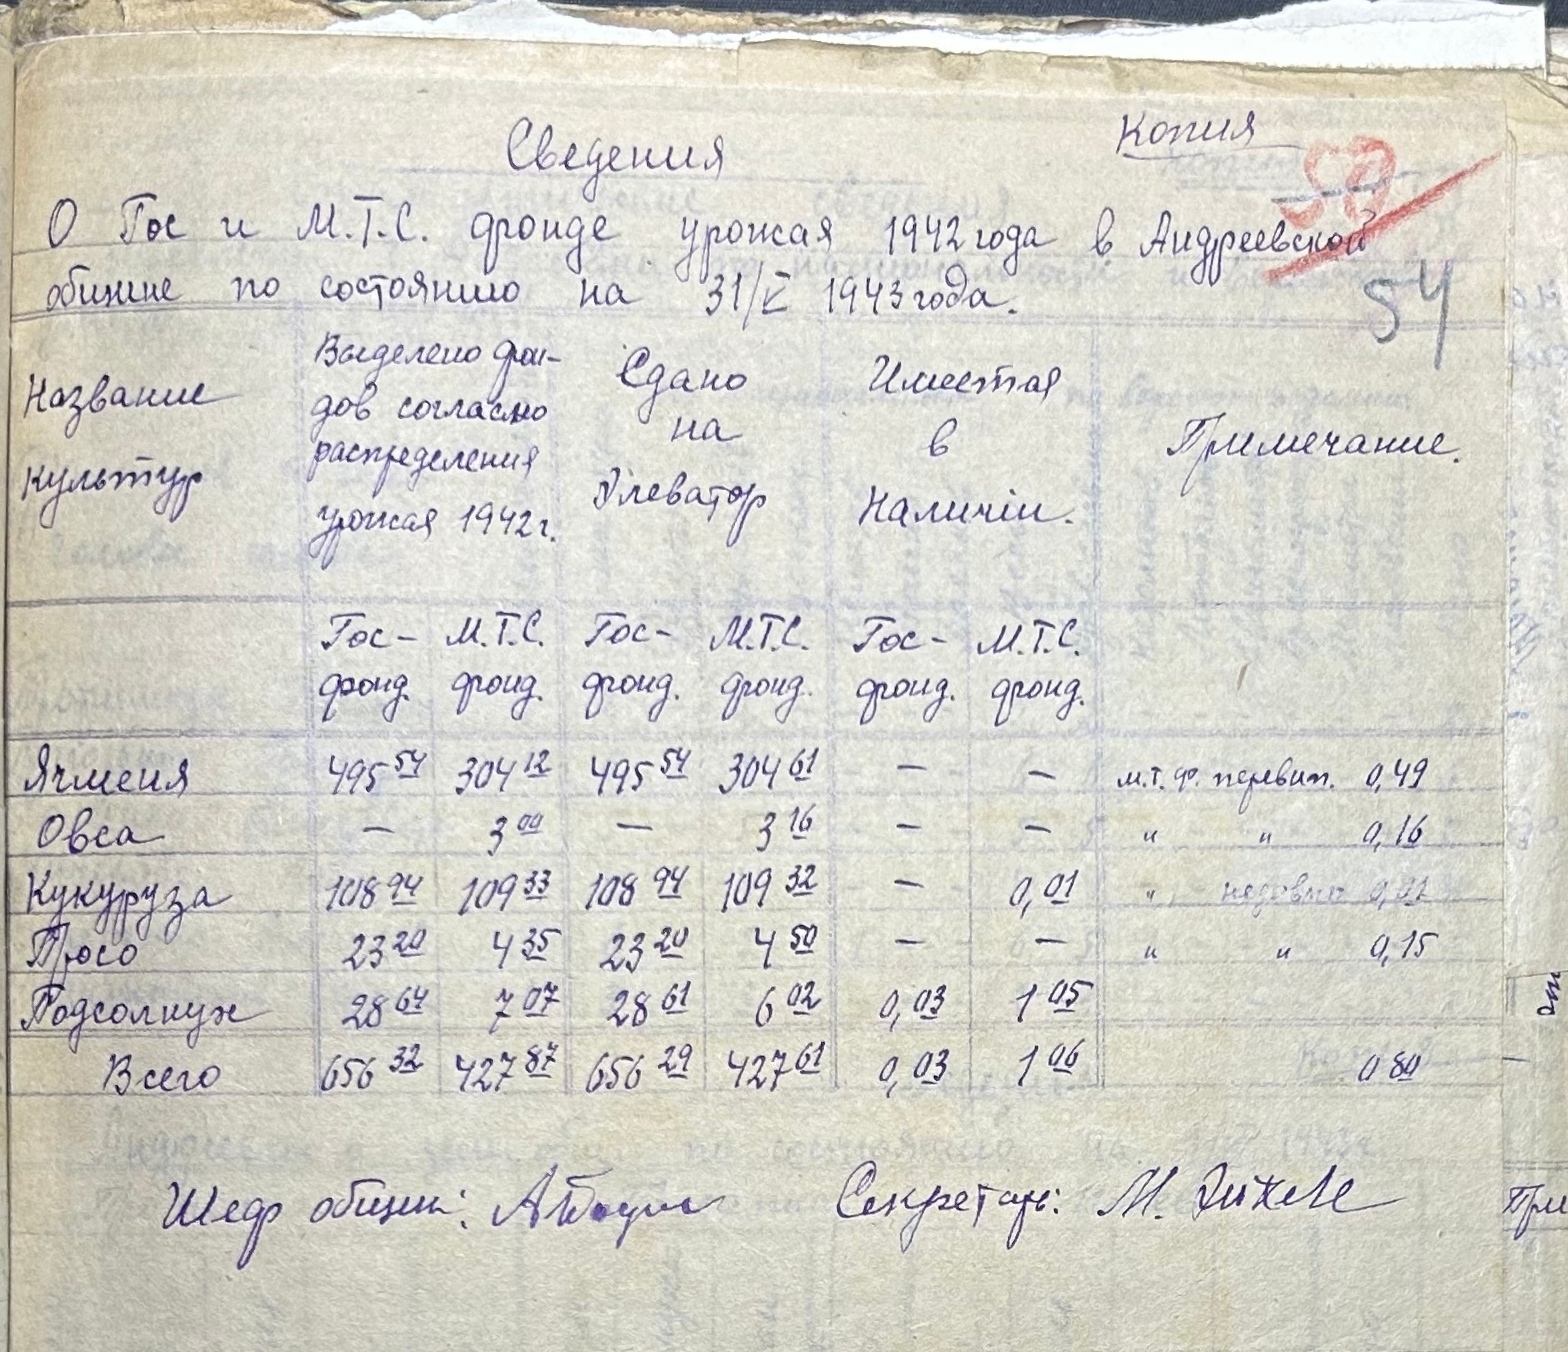 Копия
Сведения
50
О Гос и М.Т.С. фонде урожая 1942 года в Андреевской
общине по состоянию на 31/V 1943 года.
54
Название культур | Выделено фон-дов согласно распределения урожая 1942 г. | Сдано на Элеватор | Имеетая в Наличіи. | Примечание.
Гос-фонд. | М.Т.С. фонд. | Гос-фонд. | М.Т.С. фонд. | Гос-фонд. | М.Т.С. фонд.
Ячменя 495 54 304 12 495 54 304 61 — — м.т.ф. перевып. 0,49
Овса — 3 00 — 3 16 — — " " 0,16
Кукуруза 108 94 109 33 108 94 109 32 — 0,01 " 
Просо 23 20 4 35 23 20 4 50 — — " " 0,15
Подсолнух 28 64 7 07 28 61 6 02 0,03 1 05
Всего 656 32 427 87 656 29 427 61 0,03 1 06 0 80
Шеф общин: Секретарь: М.
При